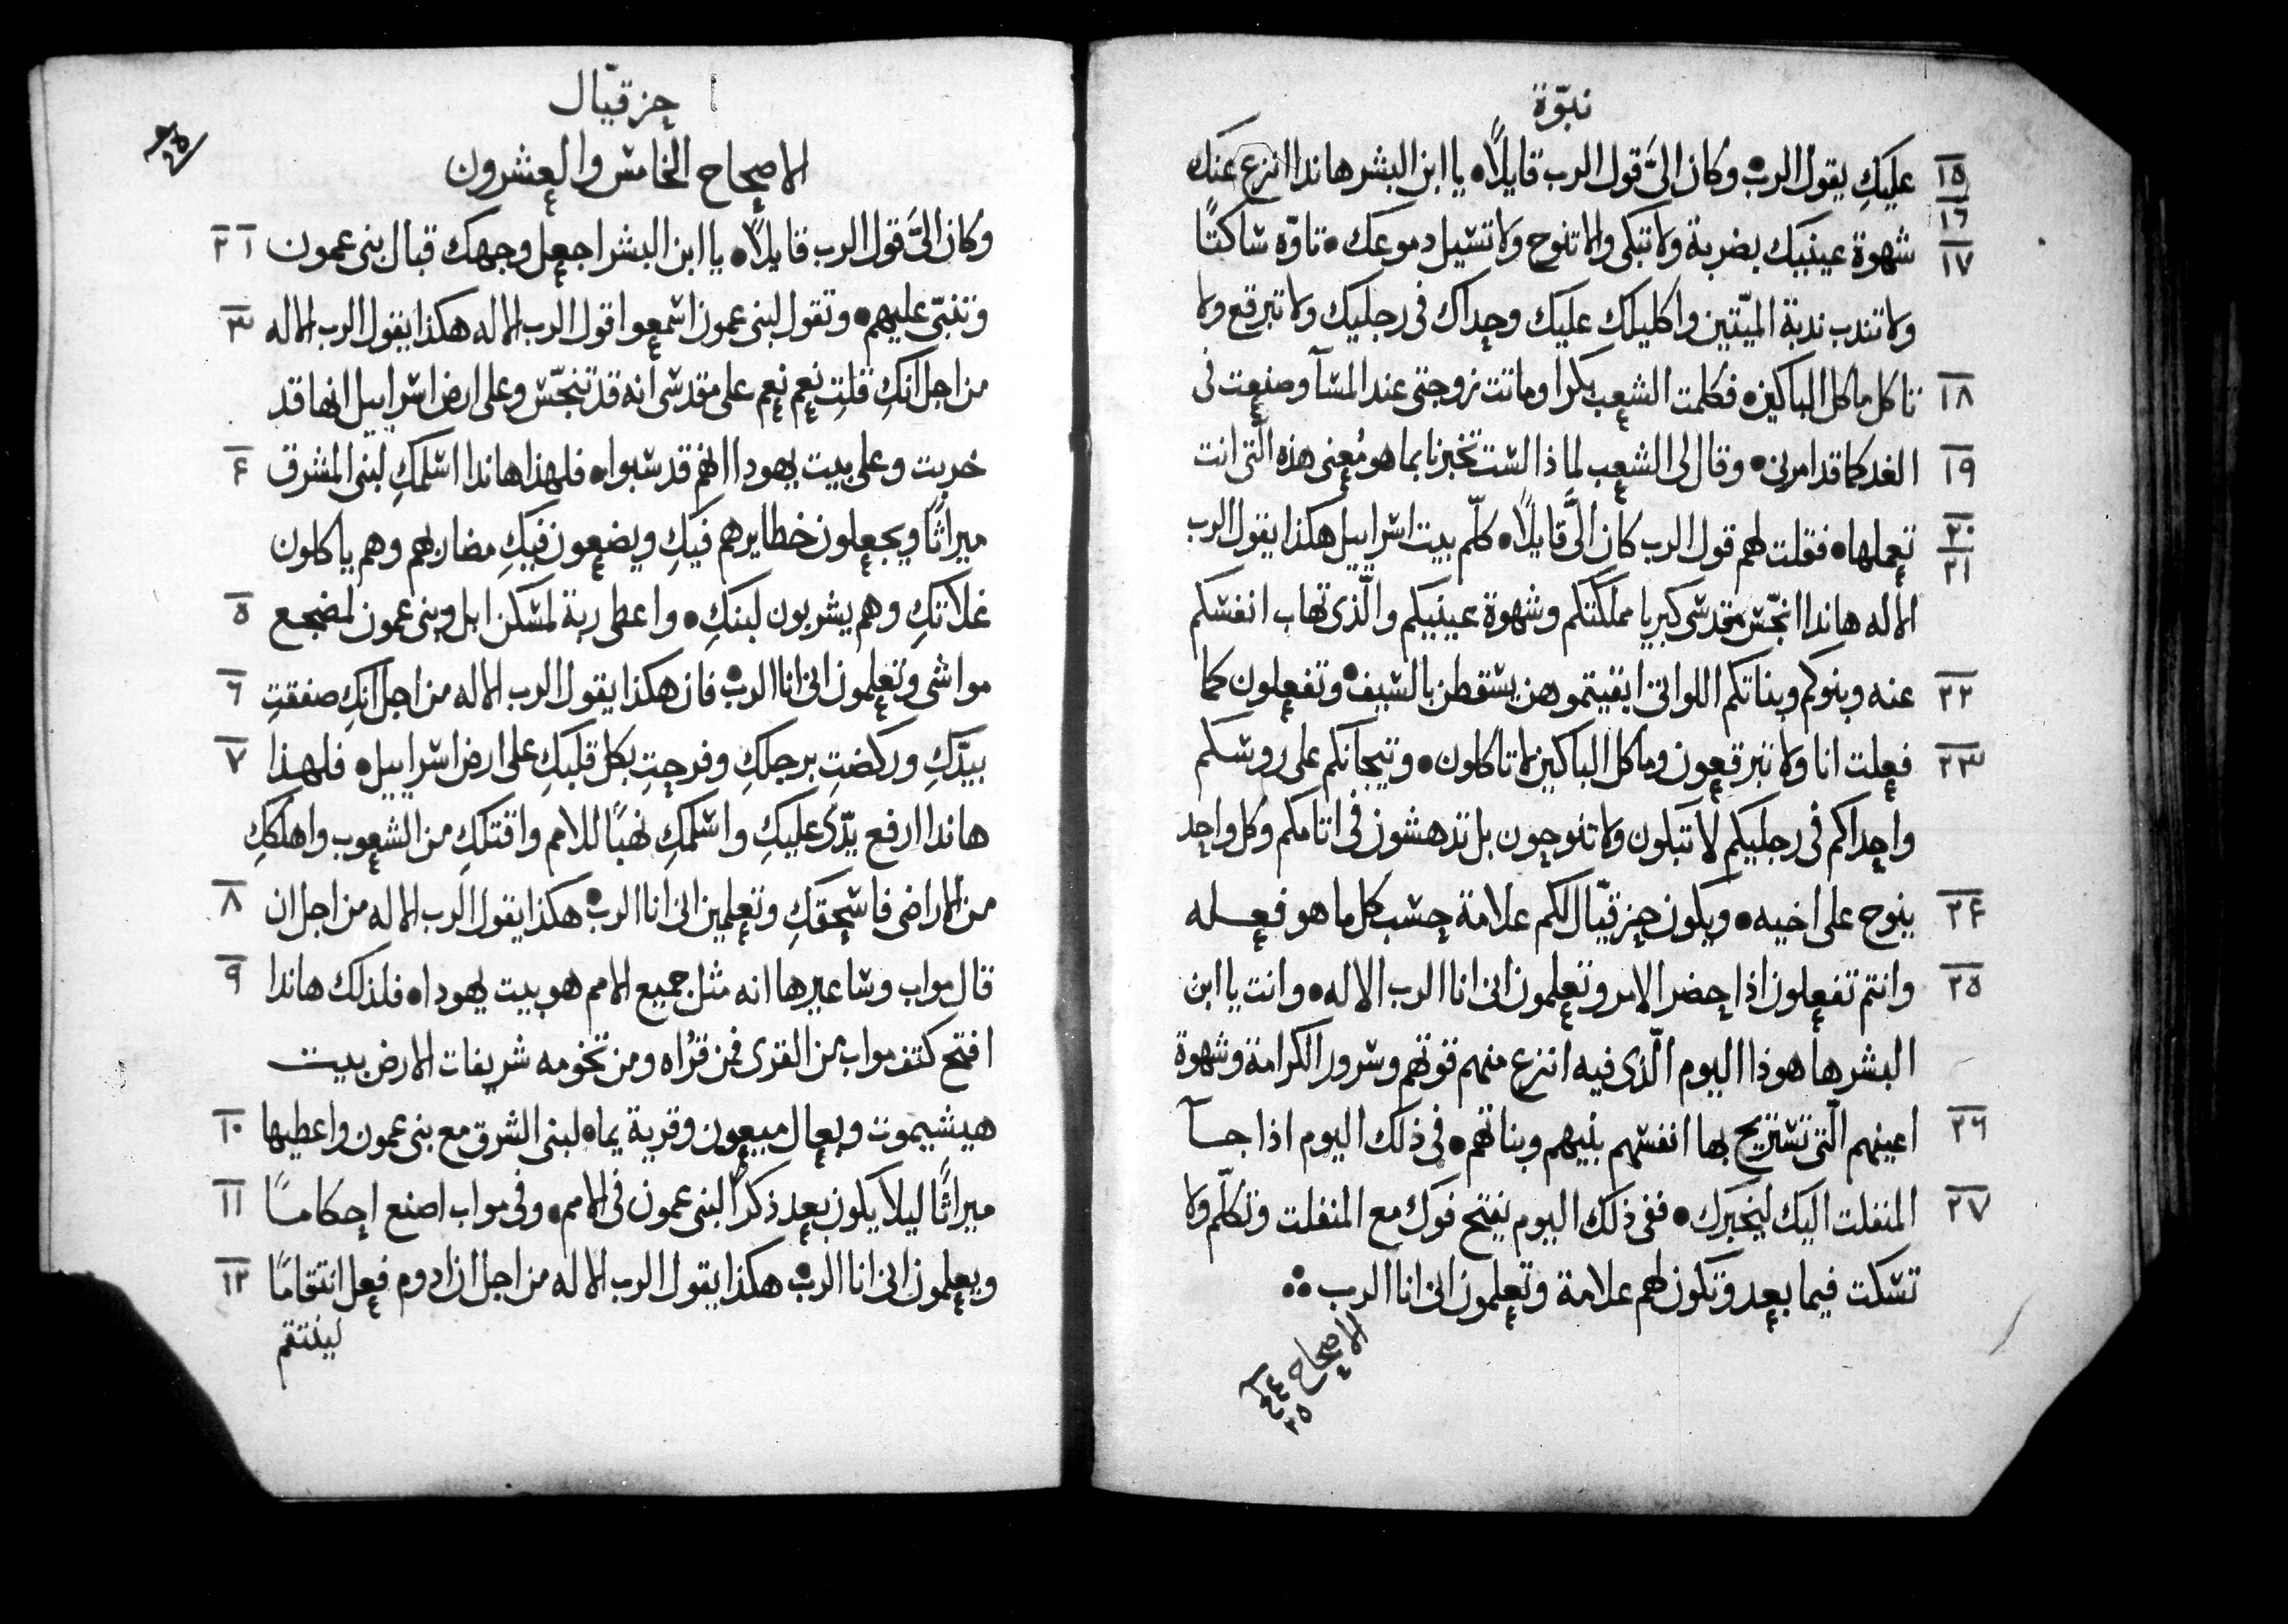 نبوّة
١٥ عليكِ يقول الرب • وكان اليَّ قول الرب قايلاً • يا ابن البشر هانذا انزع عنك
١٦
١٧ شهوة عينيك بضربة ولا تبكى ولا تنوح ولا تسيل دموعك • تاوّه ساكتًا
ولا تندب ندبة الميّتين واكليلك عليك وحداك فى رجليك ولا تبرقع ولا
١٨ تاكل ماكل الباكين • فكلمت الشعب بكرا وماتت زوجتى عند المسآ وصنعت فى
١٩ الغد كما قد امرنى • وقال لى الشعب لماذا لست تخبرنا بما هو مُعنى هذه الّتى انت
٢٠ تعملها • فقلت لهم قول الرب كان اليَّ قايلاً • كلّم بيت اسراييل هكذا يقول الرب
٢١
الاله هانذا انجّس مقدسى كبريا مملكتكم وشهوة عينيكم والّذى تهاب انفسكم
٢٢ عنه وبنوكم وبناتكم اللواتى ابقيتموهن يسقطن بالسيف • وتفعلون كما
٢٣ فعلت انا ولا تبرقعون وماكل الباكين لا تاكلون • وتيجانكم على روسكم
واحداكم فى رجليكم لا تبكون ولا تنوحون بل تدهشون فى اثامكم وكل واحد
٢٤ ينوح على اخيه • ويكون حزقيّال لكم علامة حسب كل ما هو فعله
٢٥ وانتم تفعلون اذا حضر الامر وتعلمون انى انا الرب الاله • وانت يا ابن
البشر ها هوذا اليوم الّذى فيه انتزع منهم قوتهم وسرور الكرامة وشهوة
٢٦ اعينهم الّتى تستريح بها انفسهم بنيهم وبناتهم • فى ذلك اليوم اذا جآ
٢٧ المنفلت اليك ليخبرك • ففى ذلك اليوم يفتح فوك مع المنفلت وتكلّم ولا
تسكت فيما بعد وتكون لهم علامة وتعلمون انى انا الرب
الاصحاح ٢٤
٢٥
حزقيّال
الاصحاح الخامس والعشرون
٢ ١ وكان اليَّ قول الرب قايلاً • يا ابن البشر اجعل وجهك قبال بنى عمون
٣ وتنبّى عليهم • وتقول لبنى عمون اسمعوا قول الرب الاله هكذا يقول الرب الاله
من اجل انكِ قلتِ نعم نعم على مقدسى انه قد تنجّس وعلى ارض اسراييل انها قد
٤ خربت وعلى بيت يهودا انهم قد سبوا • فلهذا هانذا اسلمكِ لبنى المشرق
ميراثًا ويجعلون خطايرهم فيكِ ويضعون فيكِ مضاربهم وهم ياكلون
٥ غلاتكِ وهم يشربون لبنكِ • واعطى ربة لمسكن ابل وبنى عمون لمضجع
٦ مواشى وتعلمون انى انا الرب • فان هكذا يقول الرب الاله من اجل انكِ صفقتِ
٧ بيدّكِ وركضتِ برجلكِ وفرحتِ بكل قلبكِ على ارض اسراييل • فلهذا
هانذا ارفع يدّى عليكِ واسلمكِ نهبًا للامم واقتلكِ من الشعوب واهلككِ
٨ من الاراضى فاسحقكِ وتعلمين انى انا الرب • هكذا يقول الرب الاله من اجل ان
٩ قال مواب وساعير ها انه مثل جميع الامم هو بيت يهودا • فلذلك هانذا
افتح كتف مواب من القرى فمن قرُاه ومن تخومه شريفات الارض بيت
١٠ هيشيموت وبعال مبعون وقرية يماه لبنى الشرق مع بنى عمون واعطيها
١١ ميراثًا ليلا يكون بعد ذكرًا لبنى عمون فى الامم • وفى مواب اصنع احكامًا
١٢ ويعلمون انى انا الرب • هكذا يقول الرب الاله من اجل ان ادوم فعل انتقامًا
لينتقم